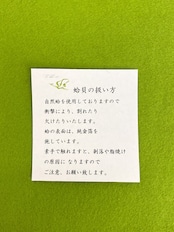 蛤貝の扱い方
自然蛤を使用しておりますので
衝撃により、割れたり
欠けたりいたします。
蛤の表面は、純金箔を
施しています。
素手で触れますと、剥落や指焼け
の原因に なりますので
ご注意、お願い致します。